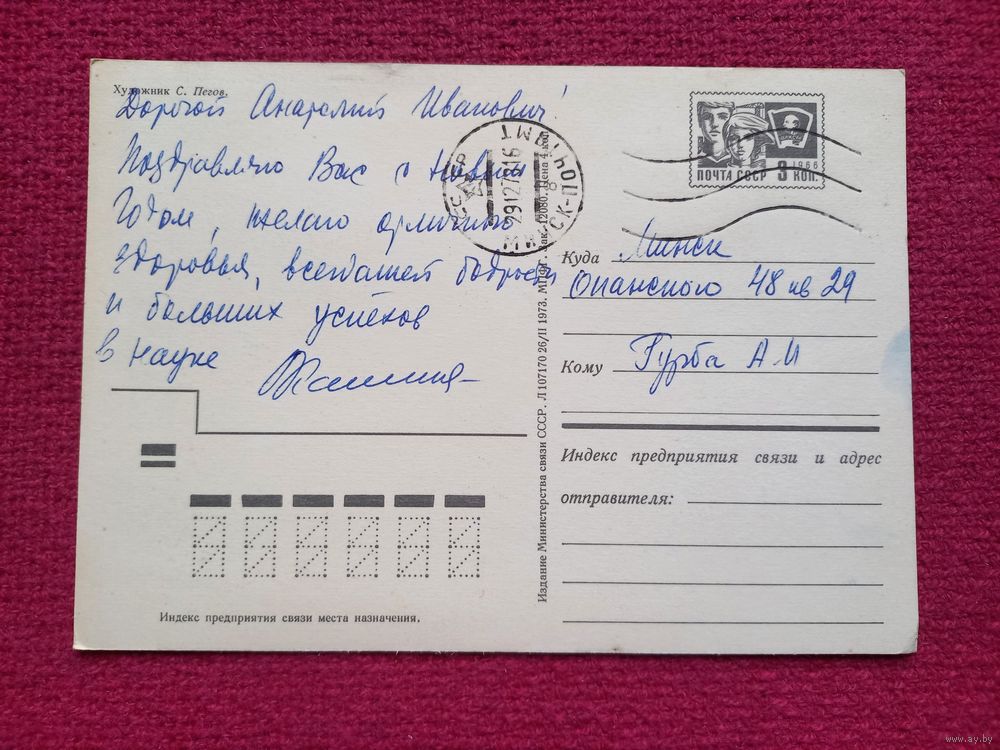 Художник С. Пегов.
Дорогой Анатолий Иванович!
Поздравляю Вас с Новым
Годом, желаю отличного
здоровья, всегдашней бодрости
и больших успехов
в науке
Индекс предприятия связи места назначения.
Издание Министерства связи СССР. Л107170 26/II 1973. МПФГ. Зак. 12080. Цена 4 коп.
СССР
МИНСК-ПОЧТАМТ
291273 16
ПОЧТА СССР 3 КОП.
1966
Куда Минск
Опанского 48 кв 29
Кому Гурба А И
Индекс предприятия связи и адрес
отправителя:
www.ay.by